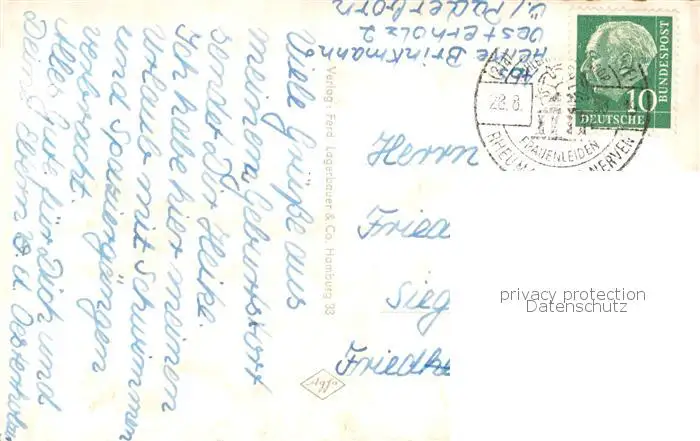 Heike Brinkmann
Oesterholz 2
ü./Paderborn
Viele Grüße aus
meinem Geburtsort
sendet Dir Heike.
Ich habe hier meinen
Urlaub mit Schwimmen
und Spaziergängen
verbracht.
Alles Gute für Dich und
Deine Eltern
Verlag: Ferd. Lagerbauer & Co. Hamburg 33
Herrn
Fried
Sieg
Friedh
10
DEUTSCHE
BUNDESPOST
28.8.
FRAUENLEIDEN
RHEUMA NERVEN
privacy protection
Datenschutz